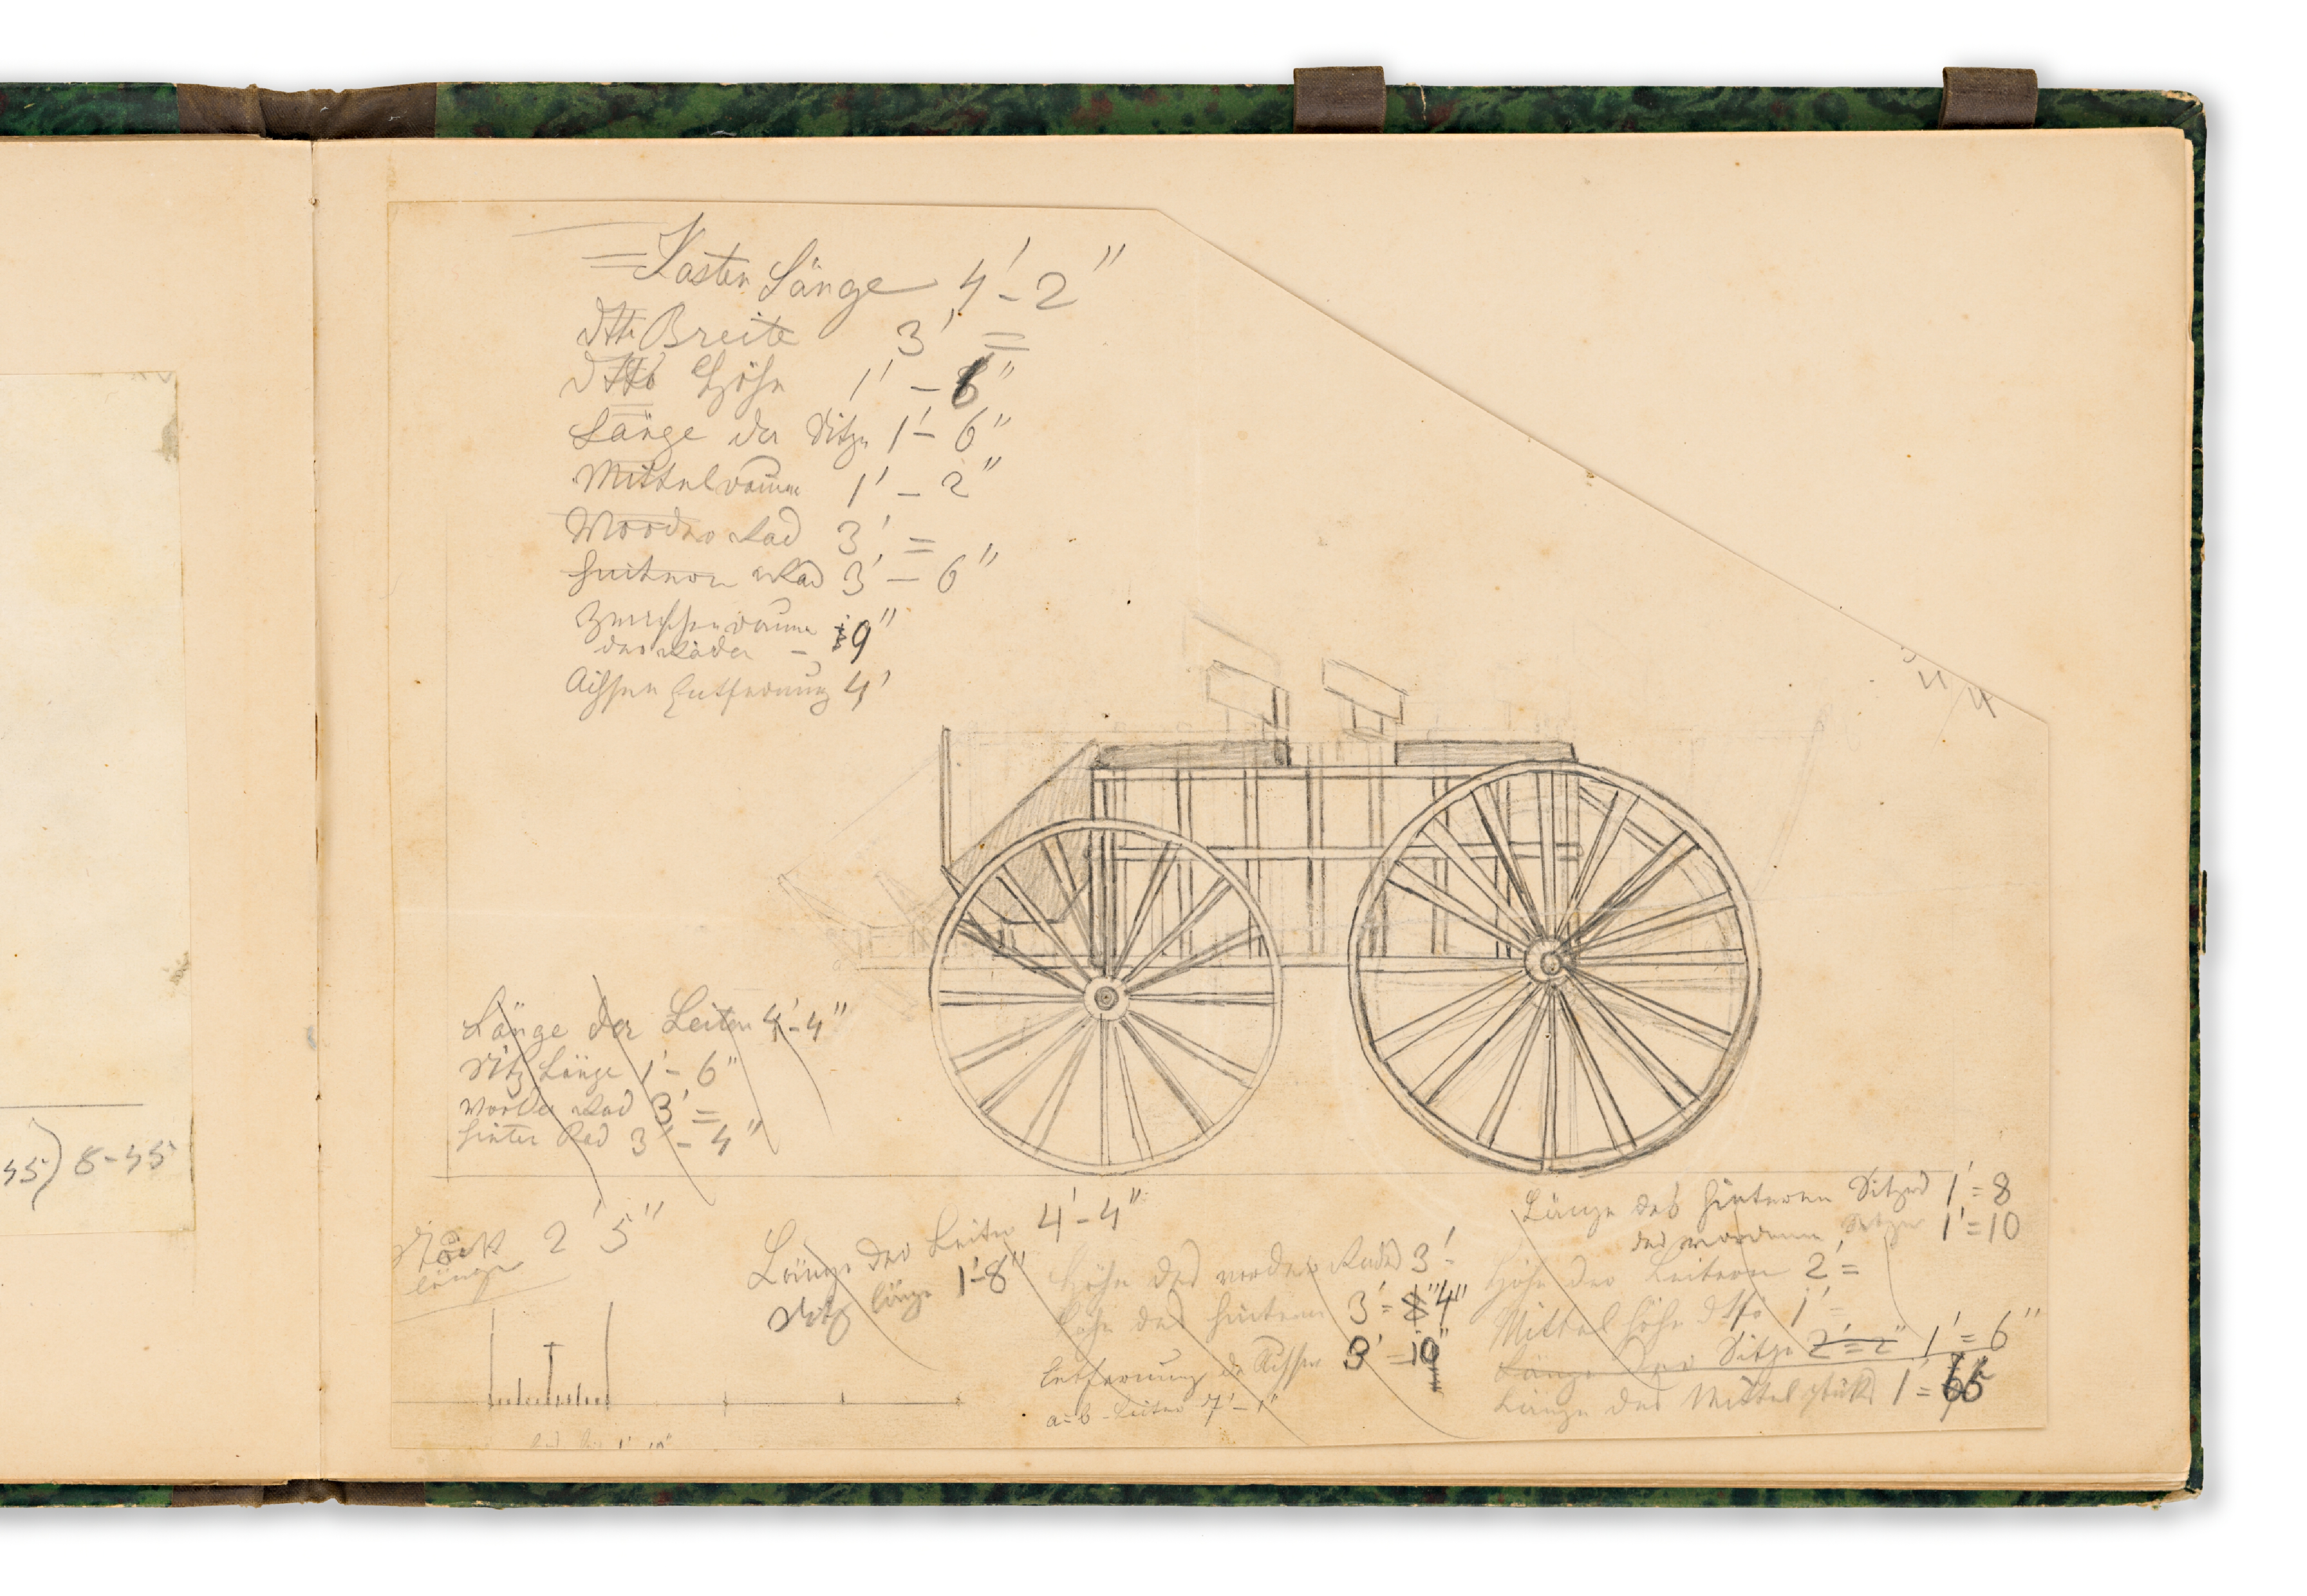 Kasten Länge 4'-2"
Dtto Breite 3' =
Dtto Höhe 1' - 6"
Länge der Sitze 1'- 6"
Mittelraum 1' - 2"
Vordere Rad 3' =
hintere Rad 3' - 6"
Zwischenraum
der Räder - 9"
Achsen Entfernung 4'
Länge der Leiter 4'-4"
Sitz Länge 1'- 6"
Vorder Rad 3' =
hinter Rad 3'- 4"
45) 8-45
länge 2' 5"
Länge der Leiter 4'-4"
Sitz länge 1'-8"
Höhe des vorder Rades 3'-
Höhe des hinteren 3'= 4"
Entfernung der Achsen 3' = 10"
a=b - Leiter 7'-1"
Länge des hinteren Sitzes 1'= 8
des vorderen Sitzes 1'=10
Höhe der Leitern 2'=
Mittel höhe dtto 1'=
Länge der Sitze 2'=2" 1'= 6"
Länge des Mittelstücks 1'=